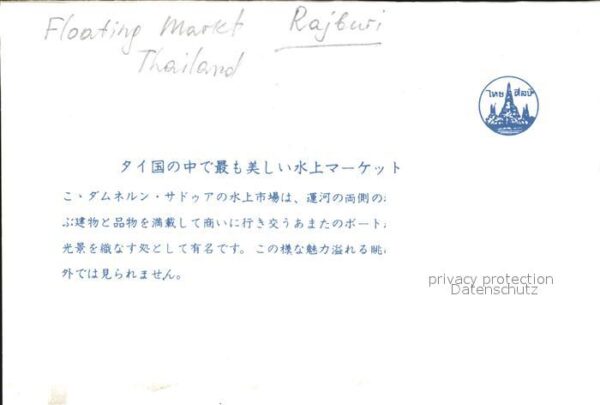 Floating Markt Rajburi
Thailand
ไทย ศิลป์
タイ国の中で最も美しい水上マーケット
こ、ダムネルン・サドゥアの水上市場は、運河の両側の
ぶ建物と品物を満載して商いに行き交うあまたのボート
光景を織なす処として有名です。この様な魅力溢れる眺
外では見られません。
privacy protection
Datenschutz